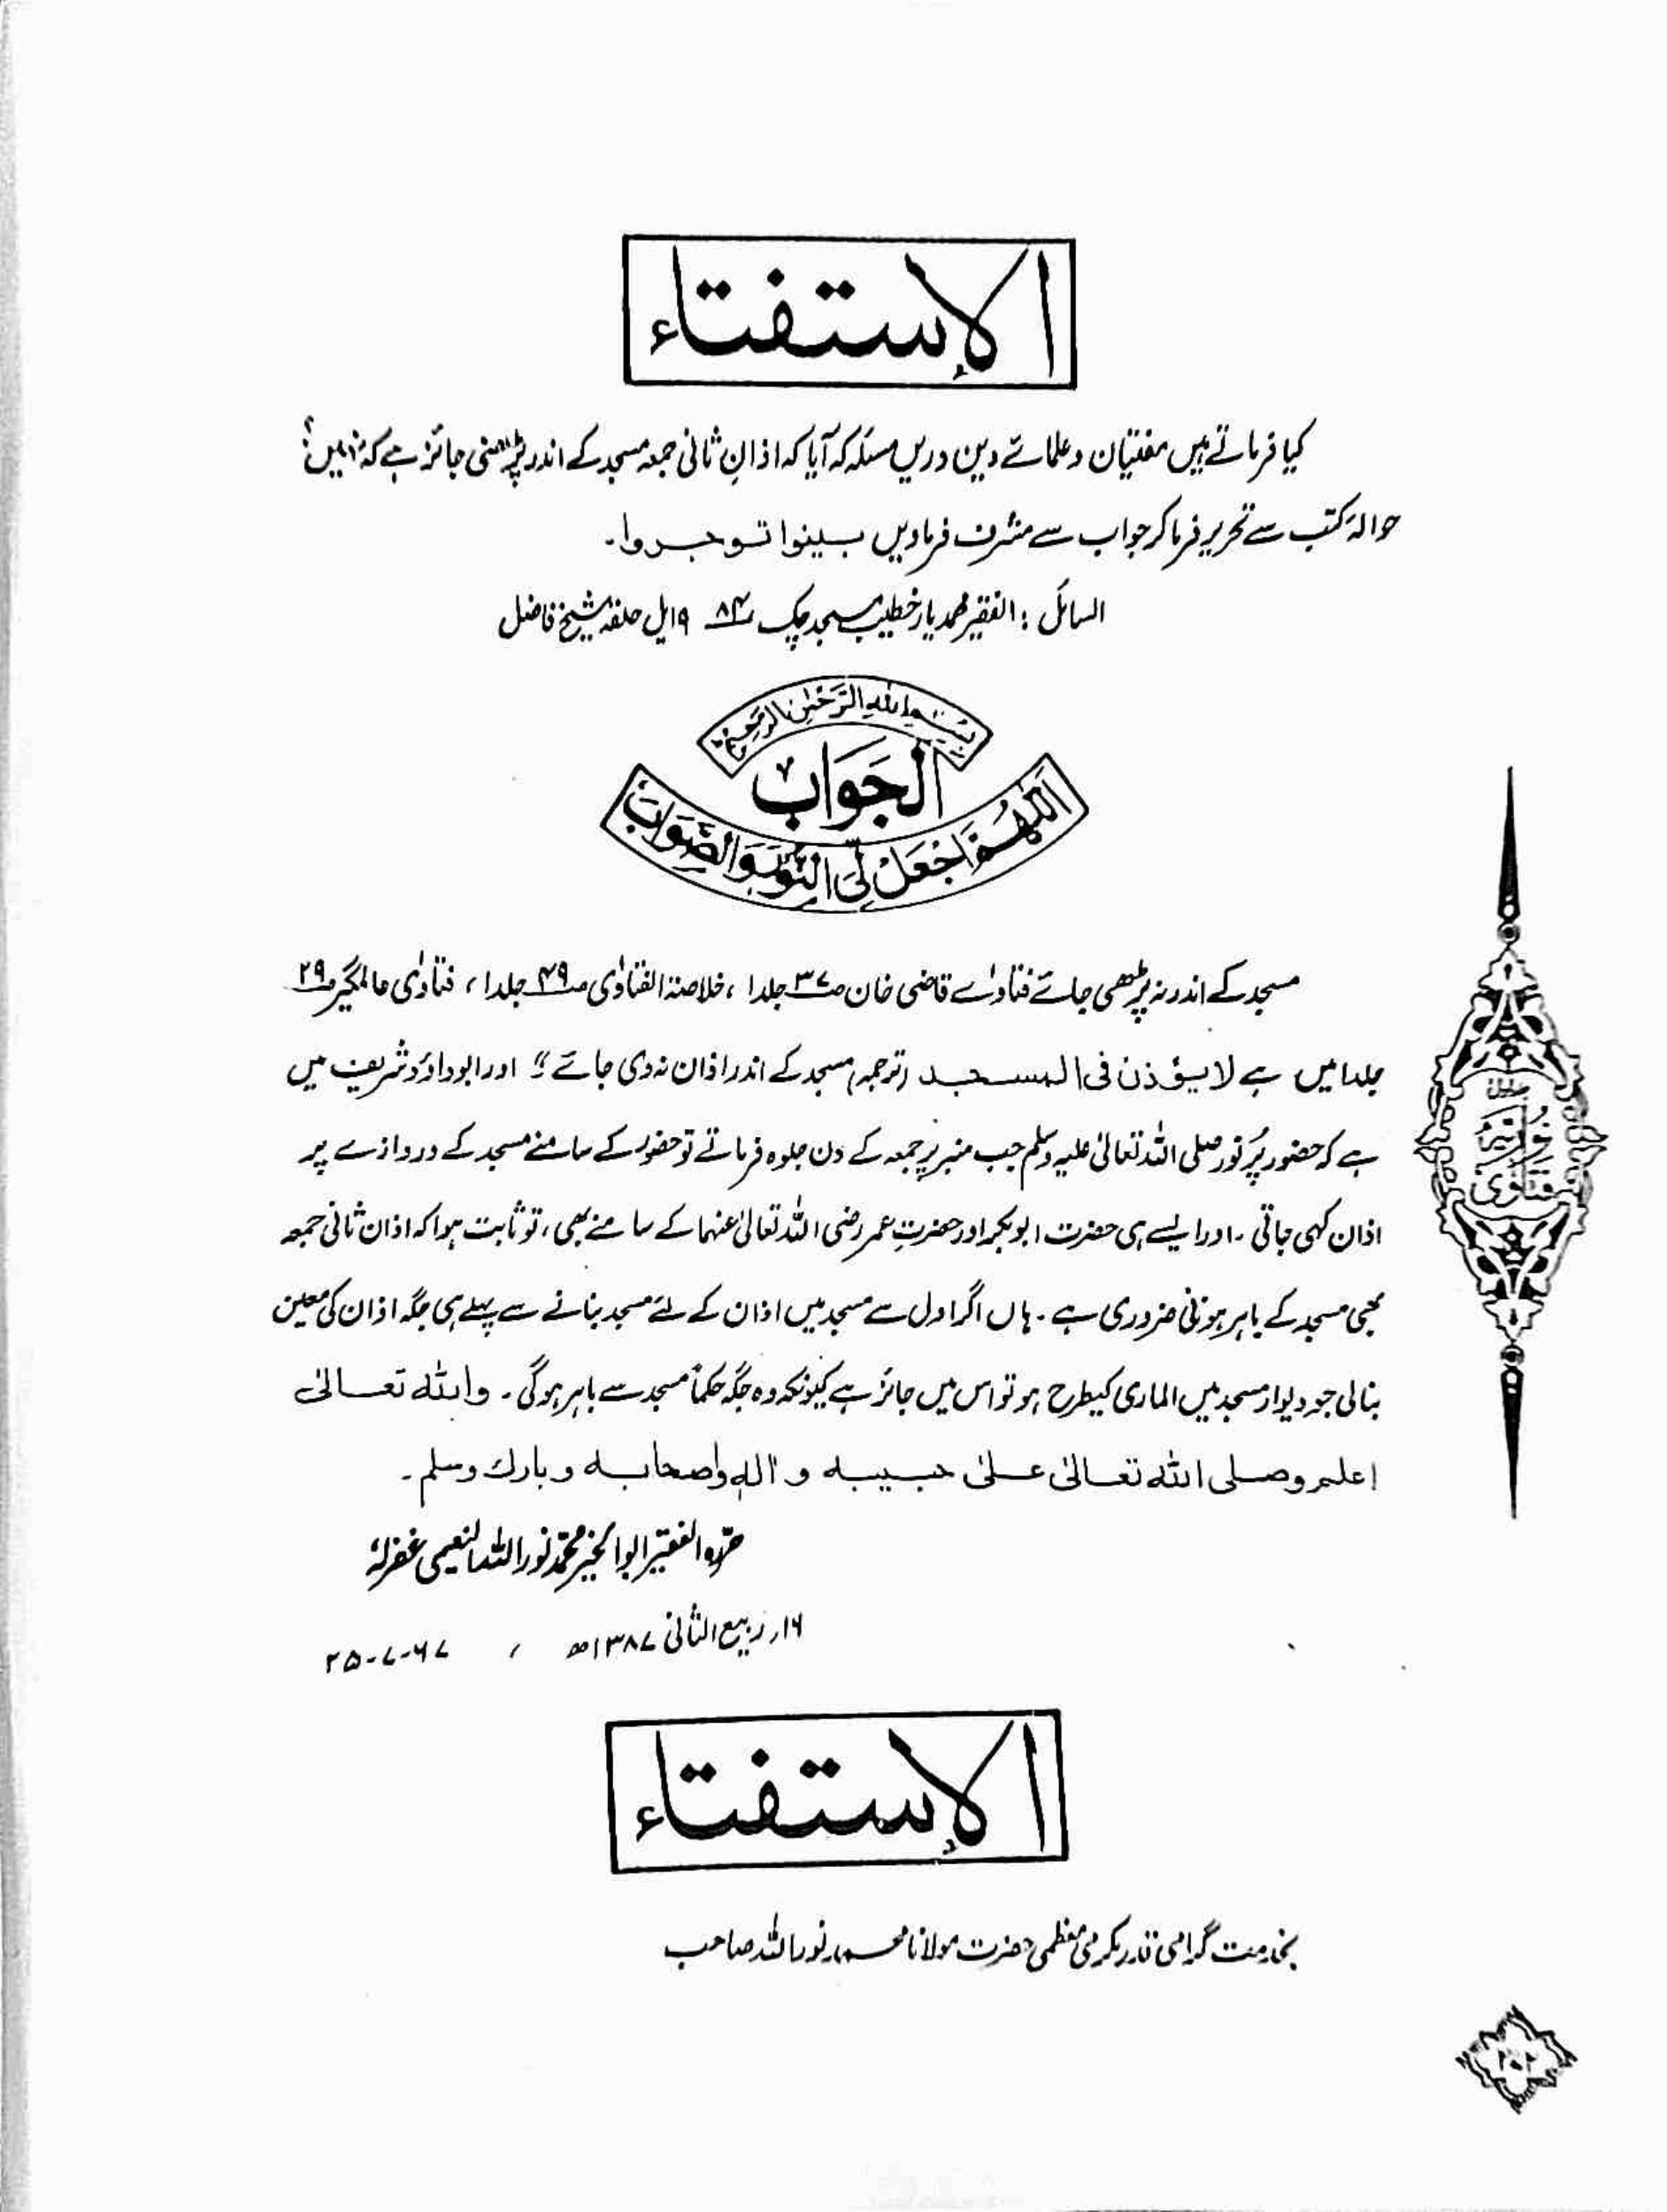 الاستفتاء
کیا فرماتے ہیں مفتیان و علمائے دین دریں مسئلہ کہ آیا کہ اذانِ ثانی جمعہ مسجد کے اندر پڑھنی جائز ہے کہ نہیں؟
حوالۂ کتب سے تحریر فرما کر جواب سے مشرف فرماویں بینوا توجروا۔
السائل : الفقیر محمد یار خطیب مسجد چک ۸۴ ۹ ایل حلقہ شیخ فاضل
بِسْمِ اللهِ الرَّحْمٰنِ الرَّحِيْمِ
الْجَوَابُ
اَللّٰهُمَّ اجْعَلْ لِيَ النُّوْرَ وَالصَّوَابَ
مسجد کے اندر نہ پڑھی جائے فتاوٰے قاضی خان صـ۳۷ جلد ا ، خلاصۃ الفتاوٰی صـ۴۹ جلد ا ، فتاوٰی عالمگیر صـ۲۹
جلد ا میں ہے لا یؤذن فی المسجد (ترجمہ) مسجد کے اندر اذان نہ دی جائے ؛؛ اور ابوداؤد شریف میں
ہے کہ حضور پُر نور صلی اللہ تعالیٰ علیہ وسلم جب منبر پر جمعہ کے دن جلوہ فرماتے تو حضور کے سامنے مسجد کے دروازے پر
اذان کہی جاتی ۔ اور ایسے ہی حضرت ابوبکر اور حضرتِ عمر رضی اللہ تعالیٰ عنہما کے سامنے بھی ، تو ثابت ہوا کہ اذان ثانی جمعہ
بھی مسجد کے باہر ہونی ضروری ہے ۔ ہاں اگر اول سے مسجد میں اذان کے لئے مسجد بنانے سے پہلے ہی جگہ اذان کی معین
بنالی جو دیوار مسجد میں الماری کیطرح ہو تو اس میں جائز ہے کیونکہ وہ جگہ حکماً مسجد سے باہر ہوگی ۔ واللہ تعالیٰ
اعلم وصلی اللہ تعالیٰ علیٰ حبیبہ و اٰلہٖ واصحابہ و بارك وسلم ۔
حرّرہ الفقیر ابو الخیر محمد نور اللہ النعیمی غفرلہٗ
۱۶ر ربیع الثانی ۱۳۸۷ھ ، ۶۷-۷-۲۵
فتاویٰ نوریہ
الاستفتاء
بخدمت گرامی قدر مکرمی معظمی حضرت مولانا محمد نور اللہ صاحب